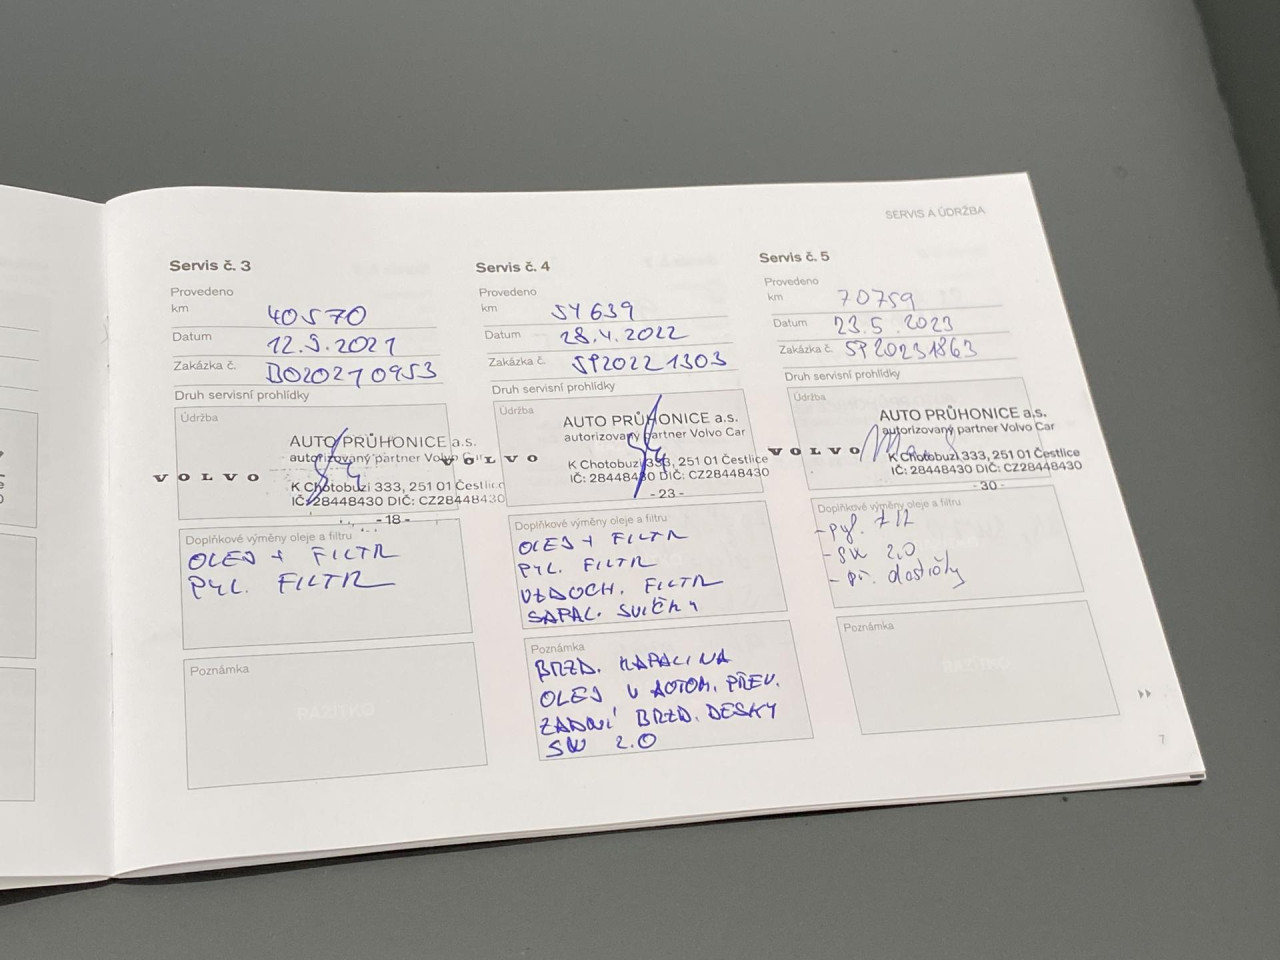 SERVIS A ÚDRŽBA
Servis č. 3
Provedeno
km 40570
Datum 12.9.2021
Zakázka č. BO20210953
Druh servisní prohlídky
Údržba
AUTO PRŮHONICE a.s.
autorizovaný partner Volvo Car
VOLVO
K Chotobuzi 333, 251 01 Čestlice
IČ: 28448430 DIČ: CZ28448430
- 18 -
Doplňkové výměny oleje a filtru
OLEJ + FILTR
PYL. FILTR
Poznámka
RAZÍTKO
Servis č. 4
Provedeno
km 54639
Datum 28.4.2022
Zakázka č. SP20221303
Druh servisní prohlídky
Údržba
AUTO PRŮHONICE a.s.
autorizovaný partner Volvo Car
VOLVO
K Chotobuzi 333, 251 01 Čestlice
IČ: 28448430 DIČ: CZ28448430
- 23 -
Doplňkové výměny oleje a filtru
OLEJ + FILTR
PYL. FILTR
VZDUCH. FILTR
ZAPAL. SVÍČKY
Poznámka
BRZD. KAPALINA
OLEJ V AUTOM. PŘEV.
ZADNÍ BRZD. DESKY
SW 2.0
Servis č. 5
Provedeno
km 70759
Datum 23.5.2023
Zakázka č. SP20231863
Druh servisní prohlídky
Údržba
AUTO PRŮHONICE a.s.
autorizovaný partner Volvo Car
VOLVO
K Chotobuzi 333, 251 01 Čestlice
IČ: 28448430 DIČ: CZ28448430
- 30 -
Doplňkové výměny oleje a filtru
- pyl.
- SW 2.0
- př. destičky
Poznámka
7